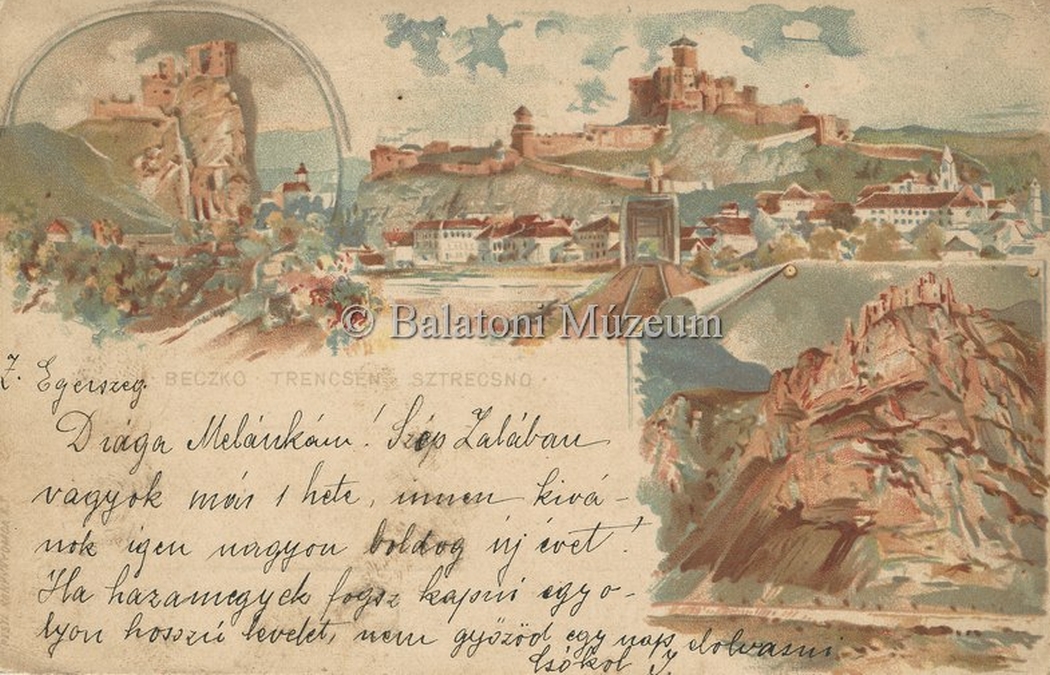 © Balatoni Múzeum
Z. Egerszeg.
BECZKO · TRENCSÉN · SZTRECSNO ·
Drága Melánkám! Szép Zalában
vagyok már 1 hete, innen kivá-
nok igen nagyon boldog új évet!
Ha hazamegyek fogsz kapni egy o-
lyon hosszú levelet, nem győzöd egy nap elolvasni
Csókol I.